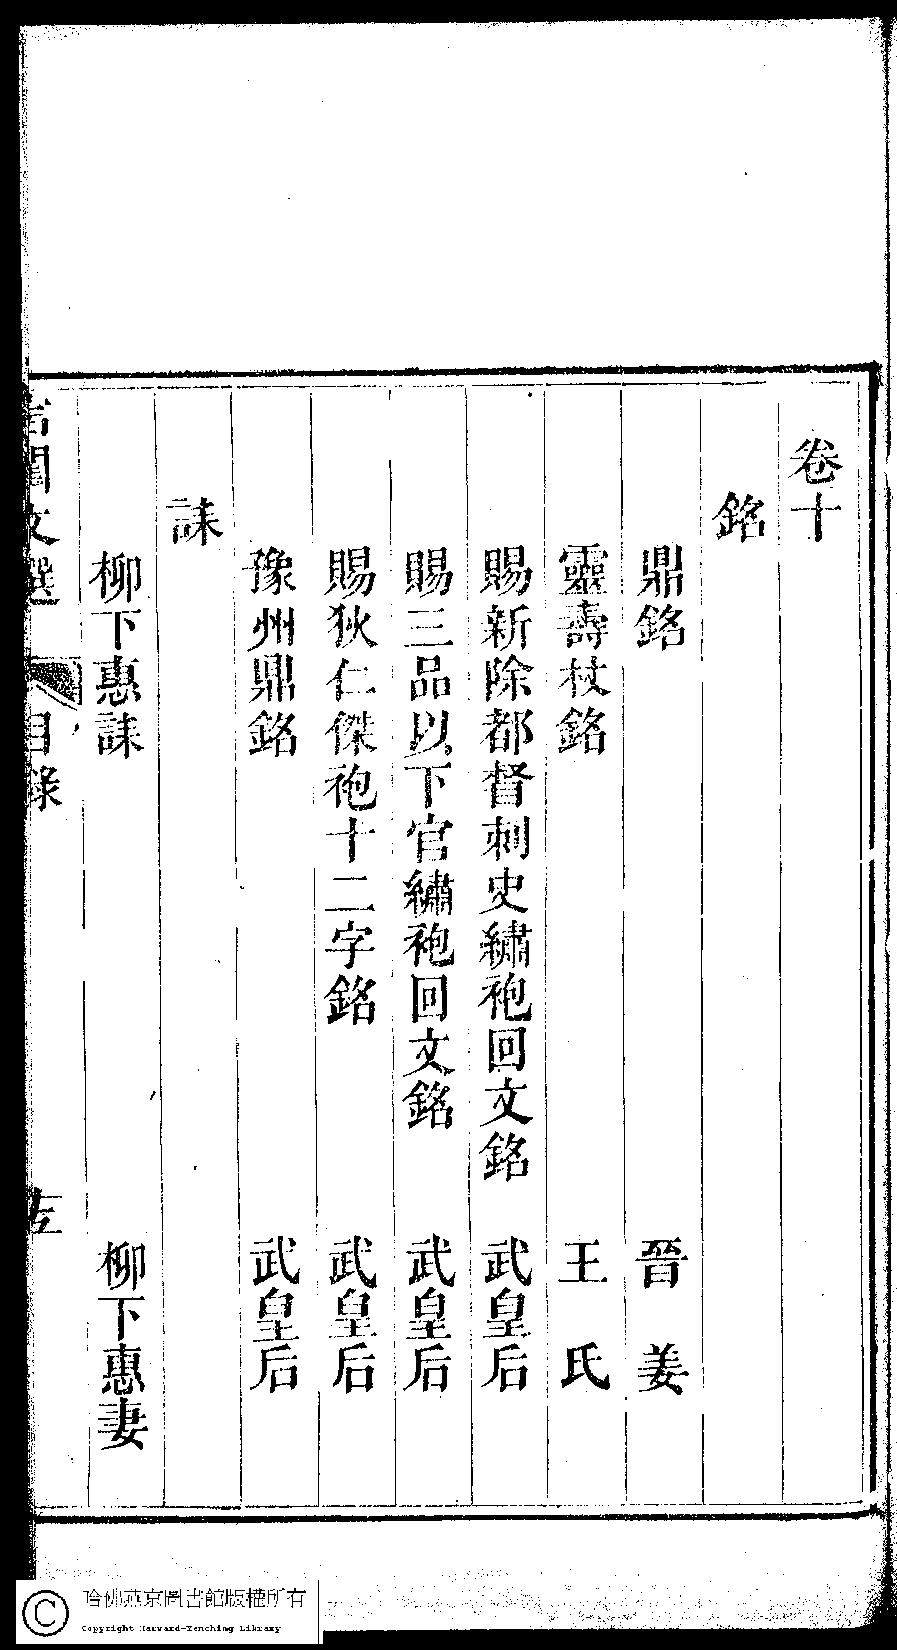 卷十
銘
鼎銘 晉姜
靈壽杖銘 王氏
賜新除都督刺史繡袍回文銘 武皇后
賜三品以下官繡袍回文銘 武皇后
賜狄仁傑袍十二字銘 武皇后
豫州鼎銘 武皇后
誄
柳下惠誄 柳下惠妻
文選 目錄
哈佛燕京圖書館版權所有
Copyright Harvard-Yenching Library